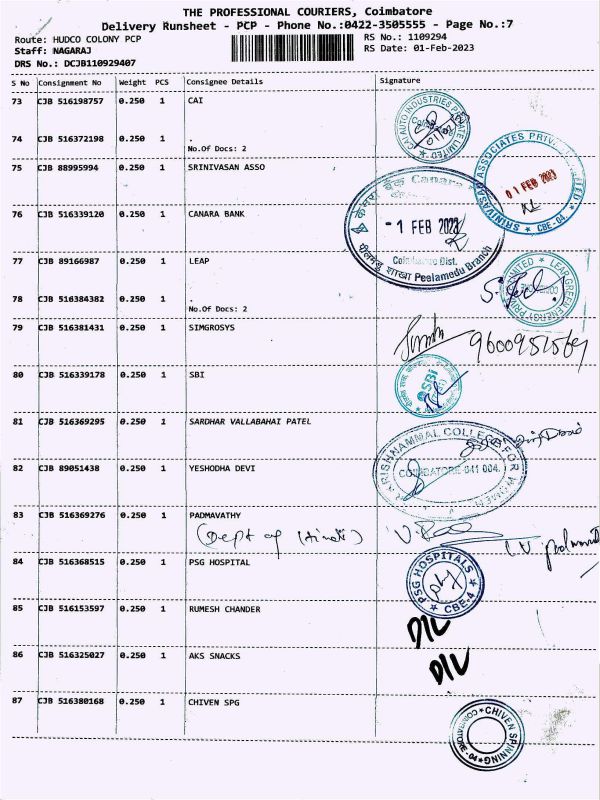 THE PROFESSIONAL COURIERS, Coimbatore
Delivery Runsheet - PCP - Phone No.:0422-3505555 - Page No.:7
Route: HUDCO COLONY PCP
RS No.: 1109294
Staff: NAGARAJ
RS Date: 01-Feb-2023
DRS No.: DCJB110929407
S No Consignment No Weight PCS Consignee Details Signature
73 CJB 516198757 0.250 1 CAI
CAI AUTO INDUSTRIES PRIVATE LIMITED
74 CJB 516372198 0.250 1 .
No.Of Docs: 2
75 CJB 88995994 0.250 1 SRINIVASAN ASSO
SRINIVASAN ASSOCIATES PRIVATE LIMITED
01 FEB 2023
CBE-04.
76 CJB 516339120 0.250 1 CANARA BANK
केनरा बैंक Canara
- 1 FEB 2023
Coimbatore Dist.
पीलमेडु शाखा Peelamedu Branch
77 CJB 89166987 0.250 1 LEAP
LEAP GREEN ENERGY PRIVATE LIMITED
78 CJB 516384382 0.250 1 .
No.Of Docs: 2
79 CJB 516381431 0.250 1 SIMGROSYS
80 CJB 516339178 0.250 1 SBI
SBI
81 CJB 516369295 0.250 1 SARDHAR VALLABAHAI PATEL
82 CJB 89051438 0.250 1 YESHODHA DEVI
KRISHNAMMAL COLLEGE FOR WOMEN
COIMBATORE-641 004.
83 CJB 516369276 0.250 1 PADMAVATHY
(Dept of Hindi)
84 CJB 516368515 0.250 1 PSG HOSPITAL
PSG HOSPITALS
CBE-4
85 CJB 516153597 0.250 1 RUMESH CHANDER
D/L
86 CJB 516325027 0.250 1 AKS SNACKS
D/L
87 CJB 516380168 0.250 1 CHIVEN SPG
CHIVEN SPINNING
COIMBATORE-04